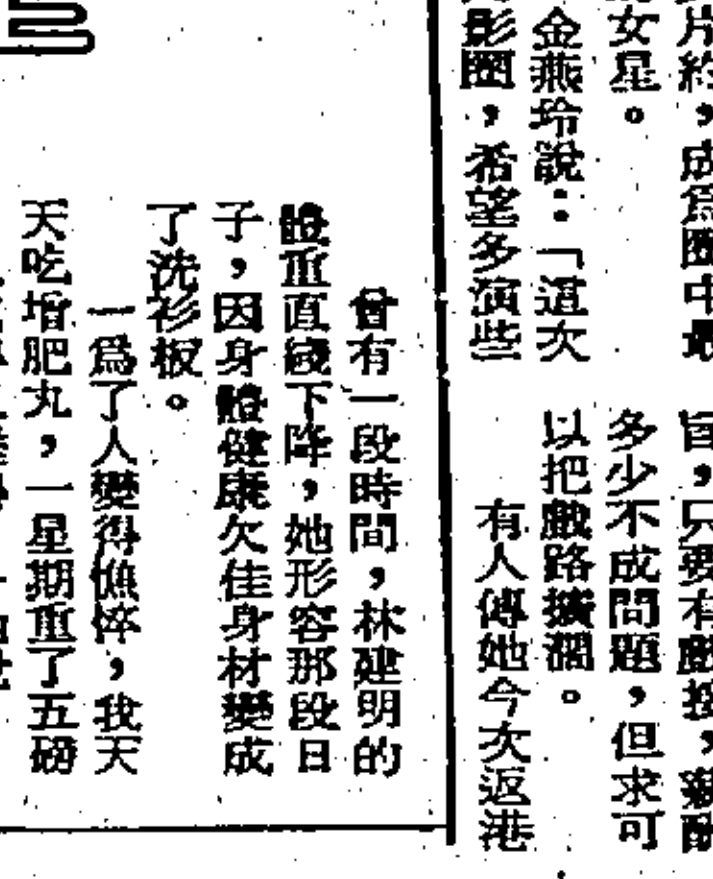 片約，成為圈中最
女星。
金燕玲說：「這次
影圈，希望多演些
旨，只要有戲接，薪酬
多少不成問題，但求可
以把戲路擴濶。
有人傳她今次返港
曾有一段時間，林建明的
體重直綫下降，她形容那段日
子，因身體健康欠佳身材變成
了洗衫板。
一為了人變得憔悴，我天
天吃增肥丸，一星期重了五磅